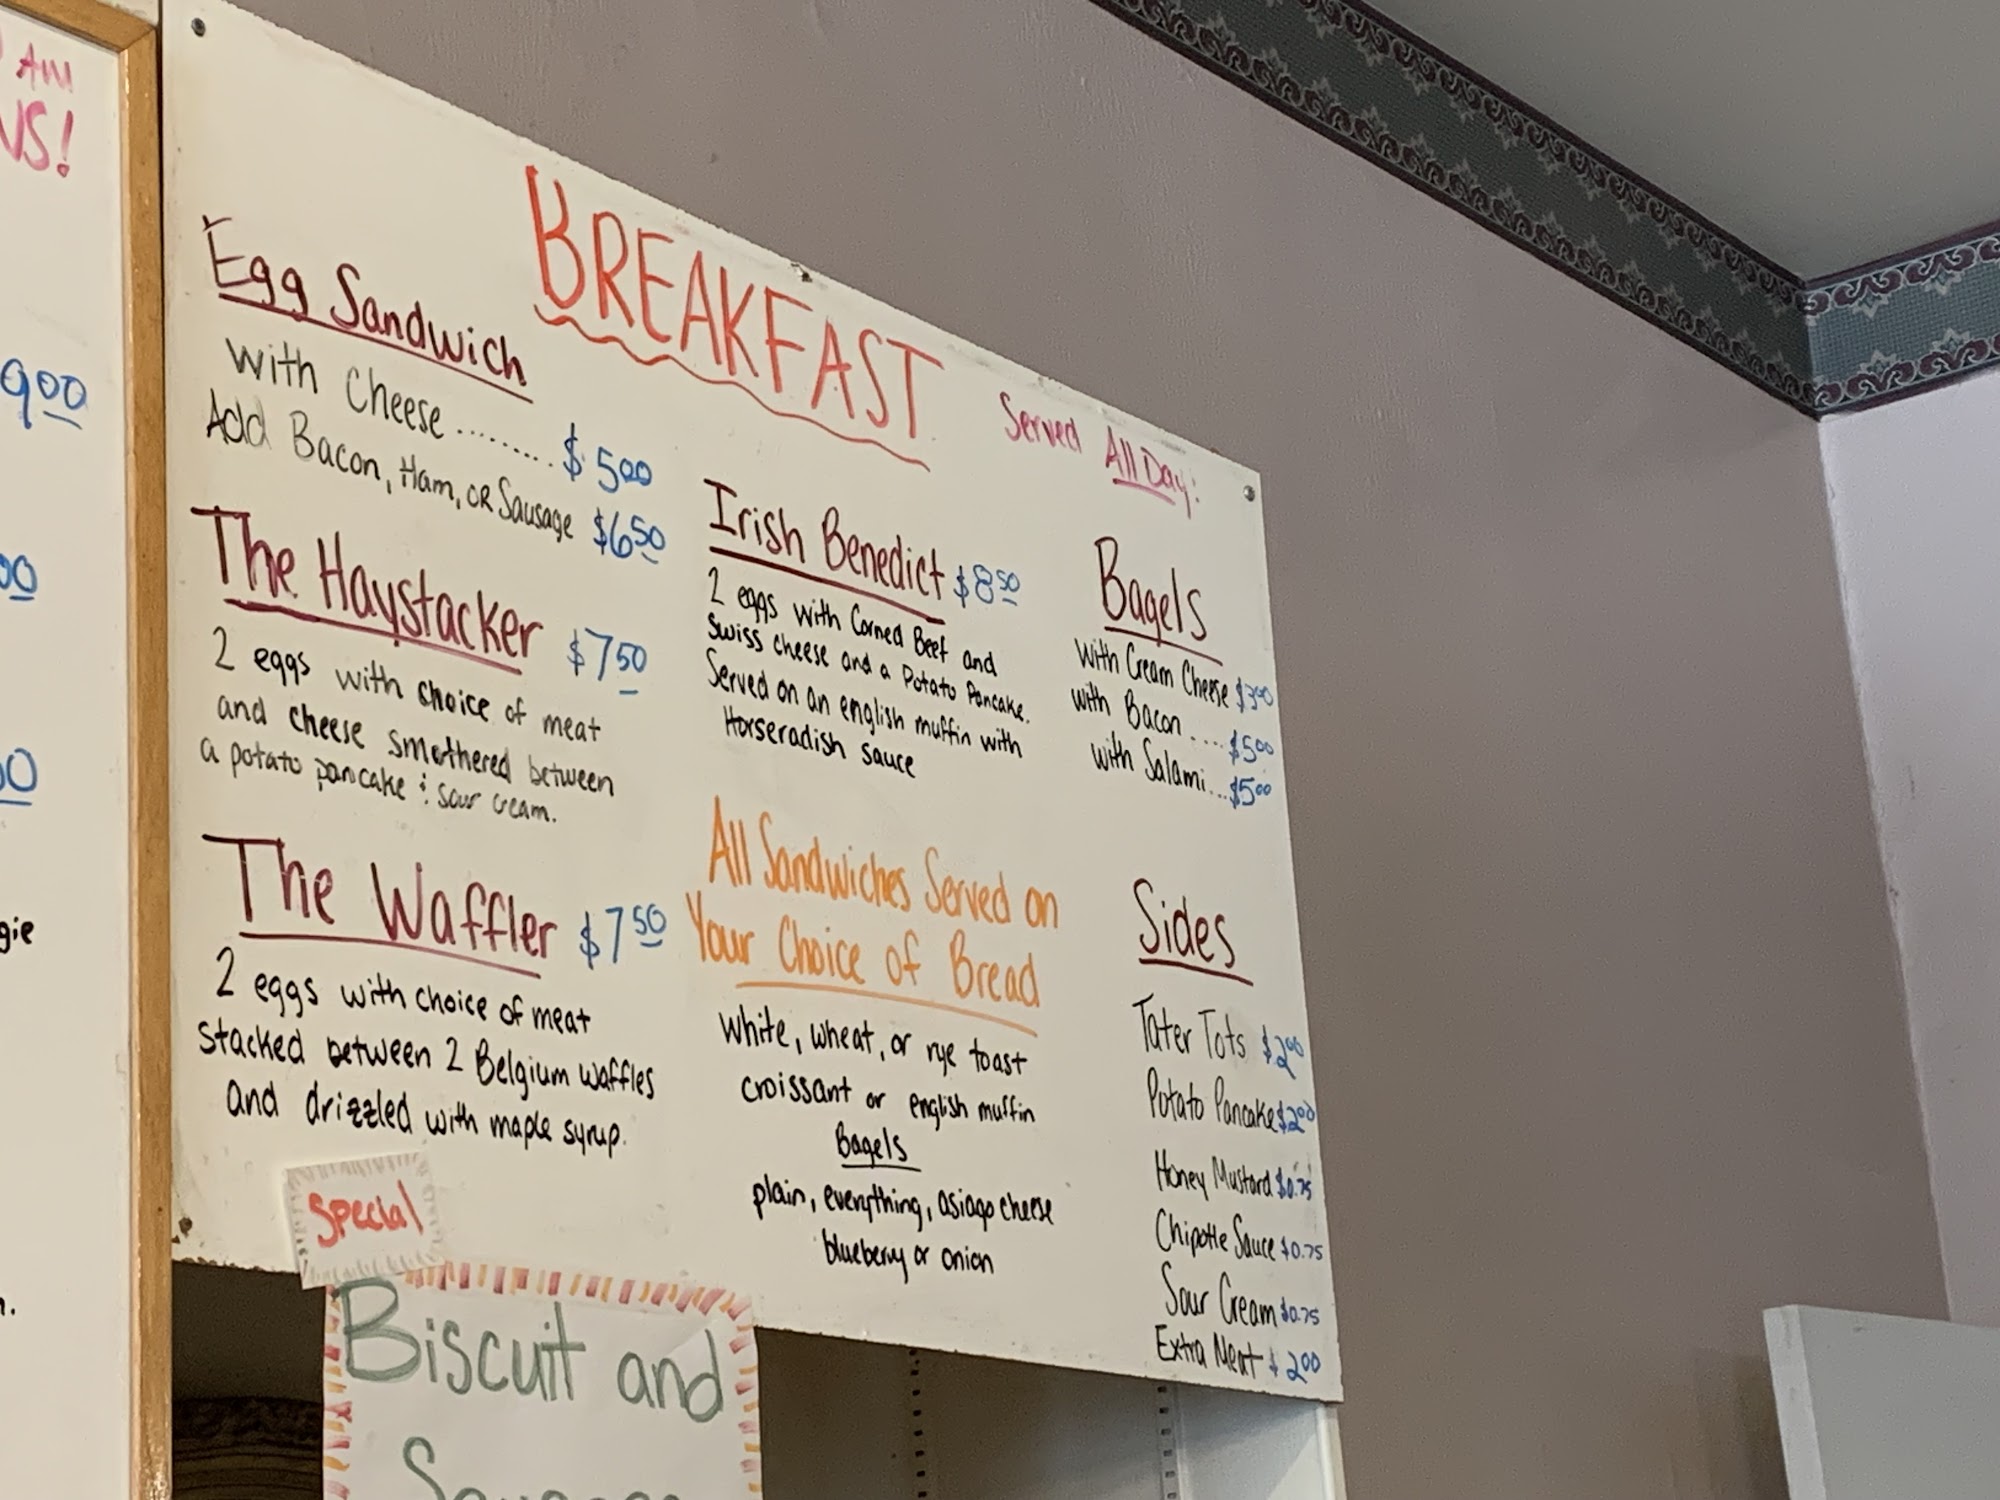 AM
NS!
900
00
00
gie
BREAKFAST
Served All Day:
Egg Sandwich
with Cheese ........ $500
Add Bacon, Ham, or Sausage $650
The Haystacker $750
2 eggs with choice of meat
and cheese smothered between
a potato pancake & sour cream.
The Waffler $750
2 eggs with choice of meat
stacked between 2 Belgium waffles
and drizzled with maple syrup.
Irish Benedict $850
2 eggs with Corned Beef and
Swiss cheese and a Potato Pancake.
Served on an english muffin with
Horseradish sauce
All Sandwiches Served on
Your Choice of Bread
white, wheat, or rye toast
croissant or english muffin
Bagels
plain, everything, asiago cheese
blueberry or onion
Bagels
with Cream Cheese $300
with Bacon .... $500
with Salami ... $500
Sides
Tater Tots $200
Potato Pancake $200
Honey Mustard $0.75
Chipotle Sauce $0.75
Sour Cream $0.75
Extra Meat $200
Special
Biscuit and